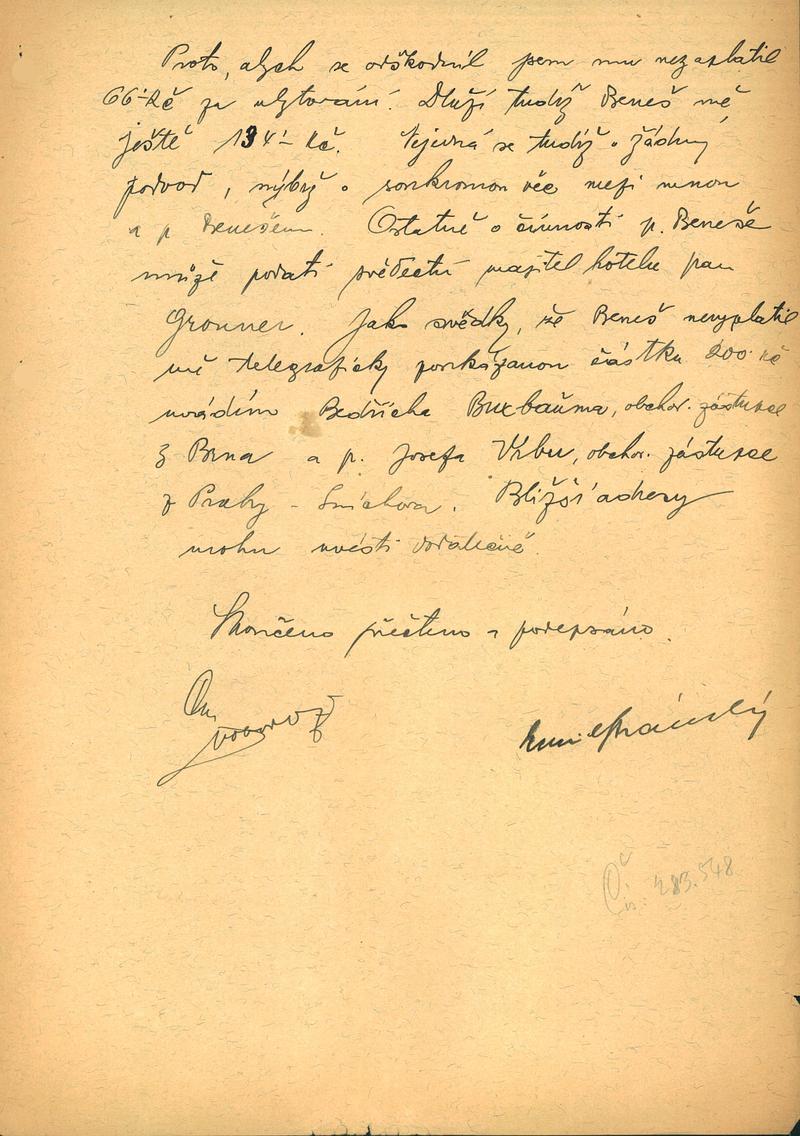 Proto, abych se odškodnil jsem mu nezaplatil
66·- Kč za ubytování. Dluží tudíž Beneš mě
ještě 134·- Kč. Nejedná se tudíž o žádný
podvod, nýbrž o soukromou věc mezi mnou
a p Benešem. Ostatně o činnosti p. Beneše
může podati svědectví majitel hotelu pan
Gronner. Jako svědky, že Beneš nevyplatil
mě telegraficky poukázanou částku 200· Kč
uvádím Bedřicha Buxbauma, obchod. zástupce
z Brna a p. Josefa Vrbu, obchod. zástupce
z Prahy - Smíchova. Bližší adresy
mohu uvésti dodatečně.
Skončeno přečteno a podepsáno.
Čís: 283.548